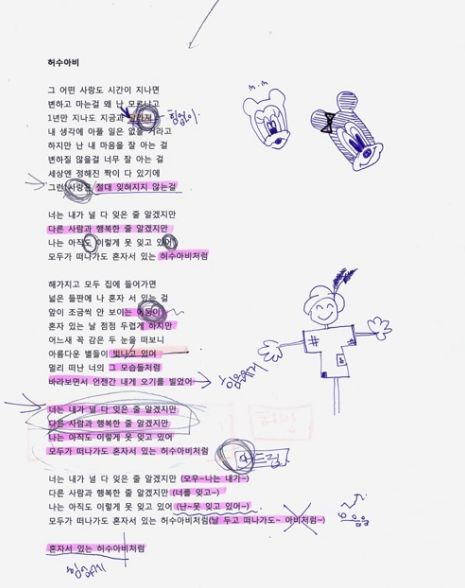 허수아비
M.M
그 어떤 사랑도 시간이 지나면
변하고 마는걸 왜 난 모르냐고
1년만 지나도 지금과
내 생각에 아플 일은 없을 거라고
하지만 난 내 마음을 잘 아는 걸
변하질 않을걸 너무 잘 아는 걸
세상엔 정해진 짝이 다 있기에
그런 사랑은 절대 잊혀지지 않는걸
너는 내가 널 다 잊은 줄 알겠지만
다른 사람과 행복한 줄 알겠지만
나는 아직도 이렇게 못 잊고 있어
모두가 떠나가도 혼자서 있는 허수아비처럼
해가지고 모두 집에 들어가면
넓은 들판에 나 혼자 서 있는 걸
앞이 조금씩 안 보이는 어둠이
혼자 있는 날 점점 두렵게 하지만
어느새 꼭 감은 두 눈을 떠보니
아름다운 별들이 빛나고 있어
멀리 떠난 너의 그 모습들처럼
바라보면서 언젠간 내게 오기를 빌었어
너는 내가 널 다 잊은 줄 알겠지만
다른 사람과 행복한 줄 알겠지만
나는 아직도 이렇게 못 잊고 있어
모두가 떠나가도 혼자서 있는 허수아비처럼
너는 내가 널 다 잊은 줄 알겠지만 (모우~나는 내가~)
다른 사람과 행복한 줄 알겠지만 (너를 잊고~)
나는 아직도 이렇게 못 잊고 있어 (난~못 잊고 있어~)
모두가 떠나가도 혼자서 있는 허수아비처럼(날 두고 떠나가도~ 아비처럼~)
혼자서 있는 허수아비처럼